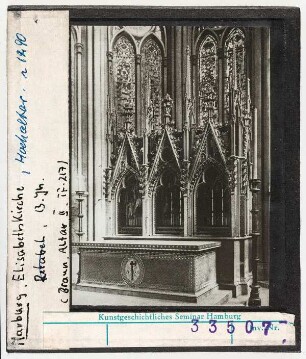 Marburg, Elisabethkirche, Hochaltar. n 1290
Retabel, 13. Jh.
(Braun, Altar II, T. 217)
Kunstgeschichtliches Seminar Hamburg
33507 Inv. Nr.